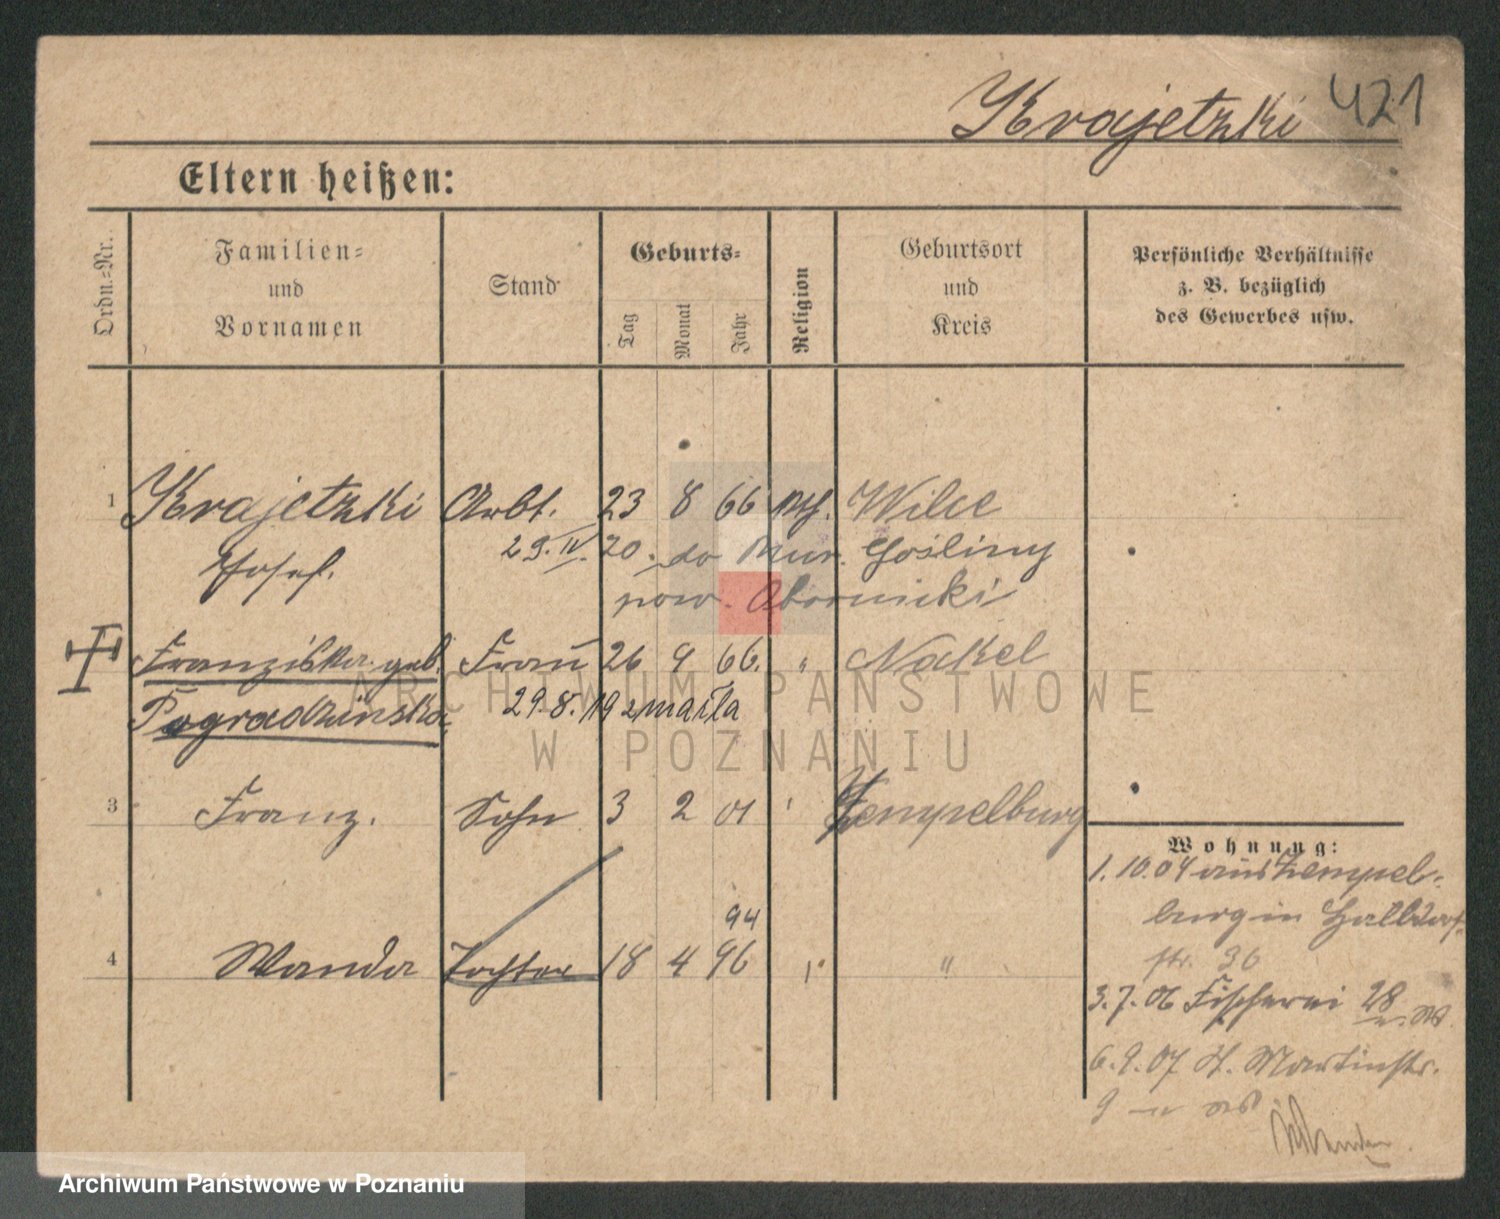 Krajetzki 421
Eltern heißen:
Ordn.=Nr.
Familien=
und
Vornamen
Stand
Geburts=
Tag
Monat
Jahr
Religion
Geburtsort
und
Kreis
Persönliche Verhältnisse
z. B. bezüglich
des Gewerbes usw.
1 Krajetzki Arbt. 23 8 66 kth. Wilce
Josef. 29. IV. 20. do Mur. Gośliny
pow. Obornicki
Franziska geb. Frau 26 9 66. " Nakel
Pogradzinska 29.8.19 zmarła
3 Franz. Sohn 3 2 01 " Zempelburg
94
4 Wanda Tochter 18 4 96 " "
Wohnung:
1.10.04 aus Zempel-
burg in Halbdorf-
str. 36
3.7.06 Fischerei 28
6.9.07 St. Martinstr.
9
ARCHIWUM PAŃSTWOWE
W POZNANIU
Archiwum Państwowe w Poznaniu